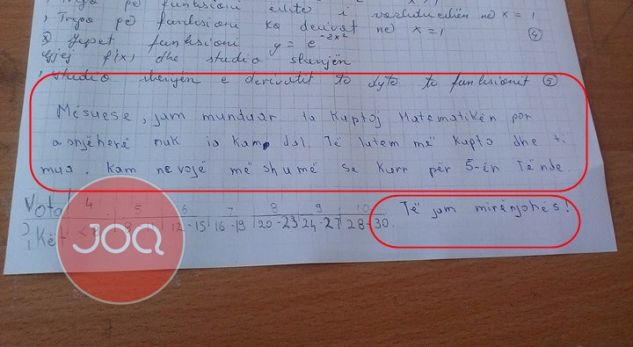 Trego pe funksioni eshte i vazhdueshëm në x = 1
Trego pe funksioni ka derivat në x = 1 (4)
Jepet funksioni y = e^-2x²
Gjej f'(x) dhe studio shenjën
studio shenjën e derivatit të dytë të funksionit (5)
Mësuese, jam munduar ta kuptoj Matematikën por
asnjëherë nuk ia kam dal. Të lutem më kupto dhe ti
mua. Kam nevojë më shumë se kurr për 5-ën Tënde.
Të jam mirënjohës!
Vota 4 5 6 7 8 9 10
12-15 16-19 20-23 24-27 28-30
JOQ